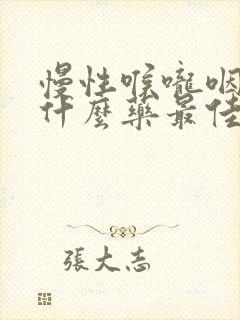 慢性喉嚨咽
什麼藥最佳
張大志